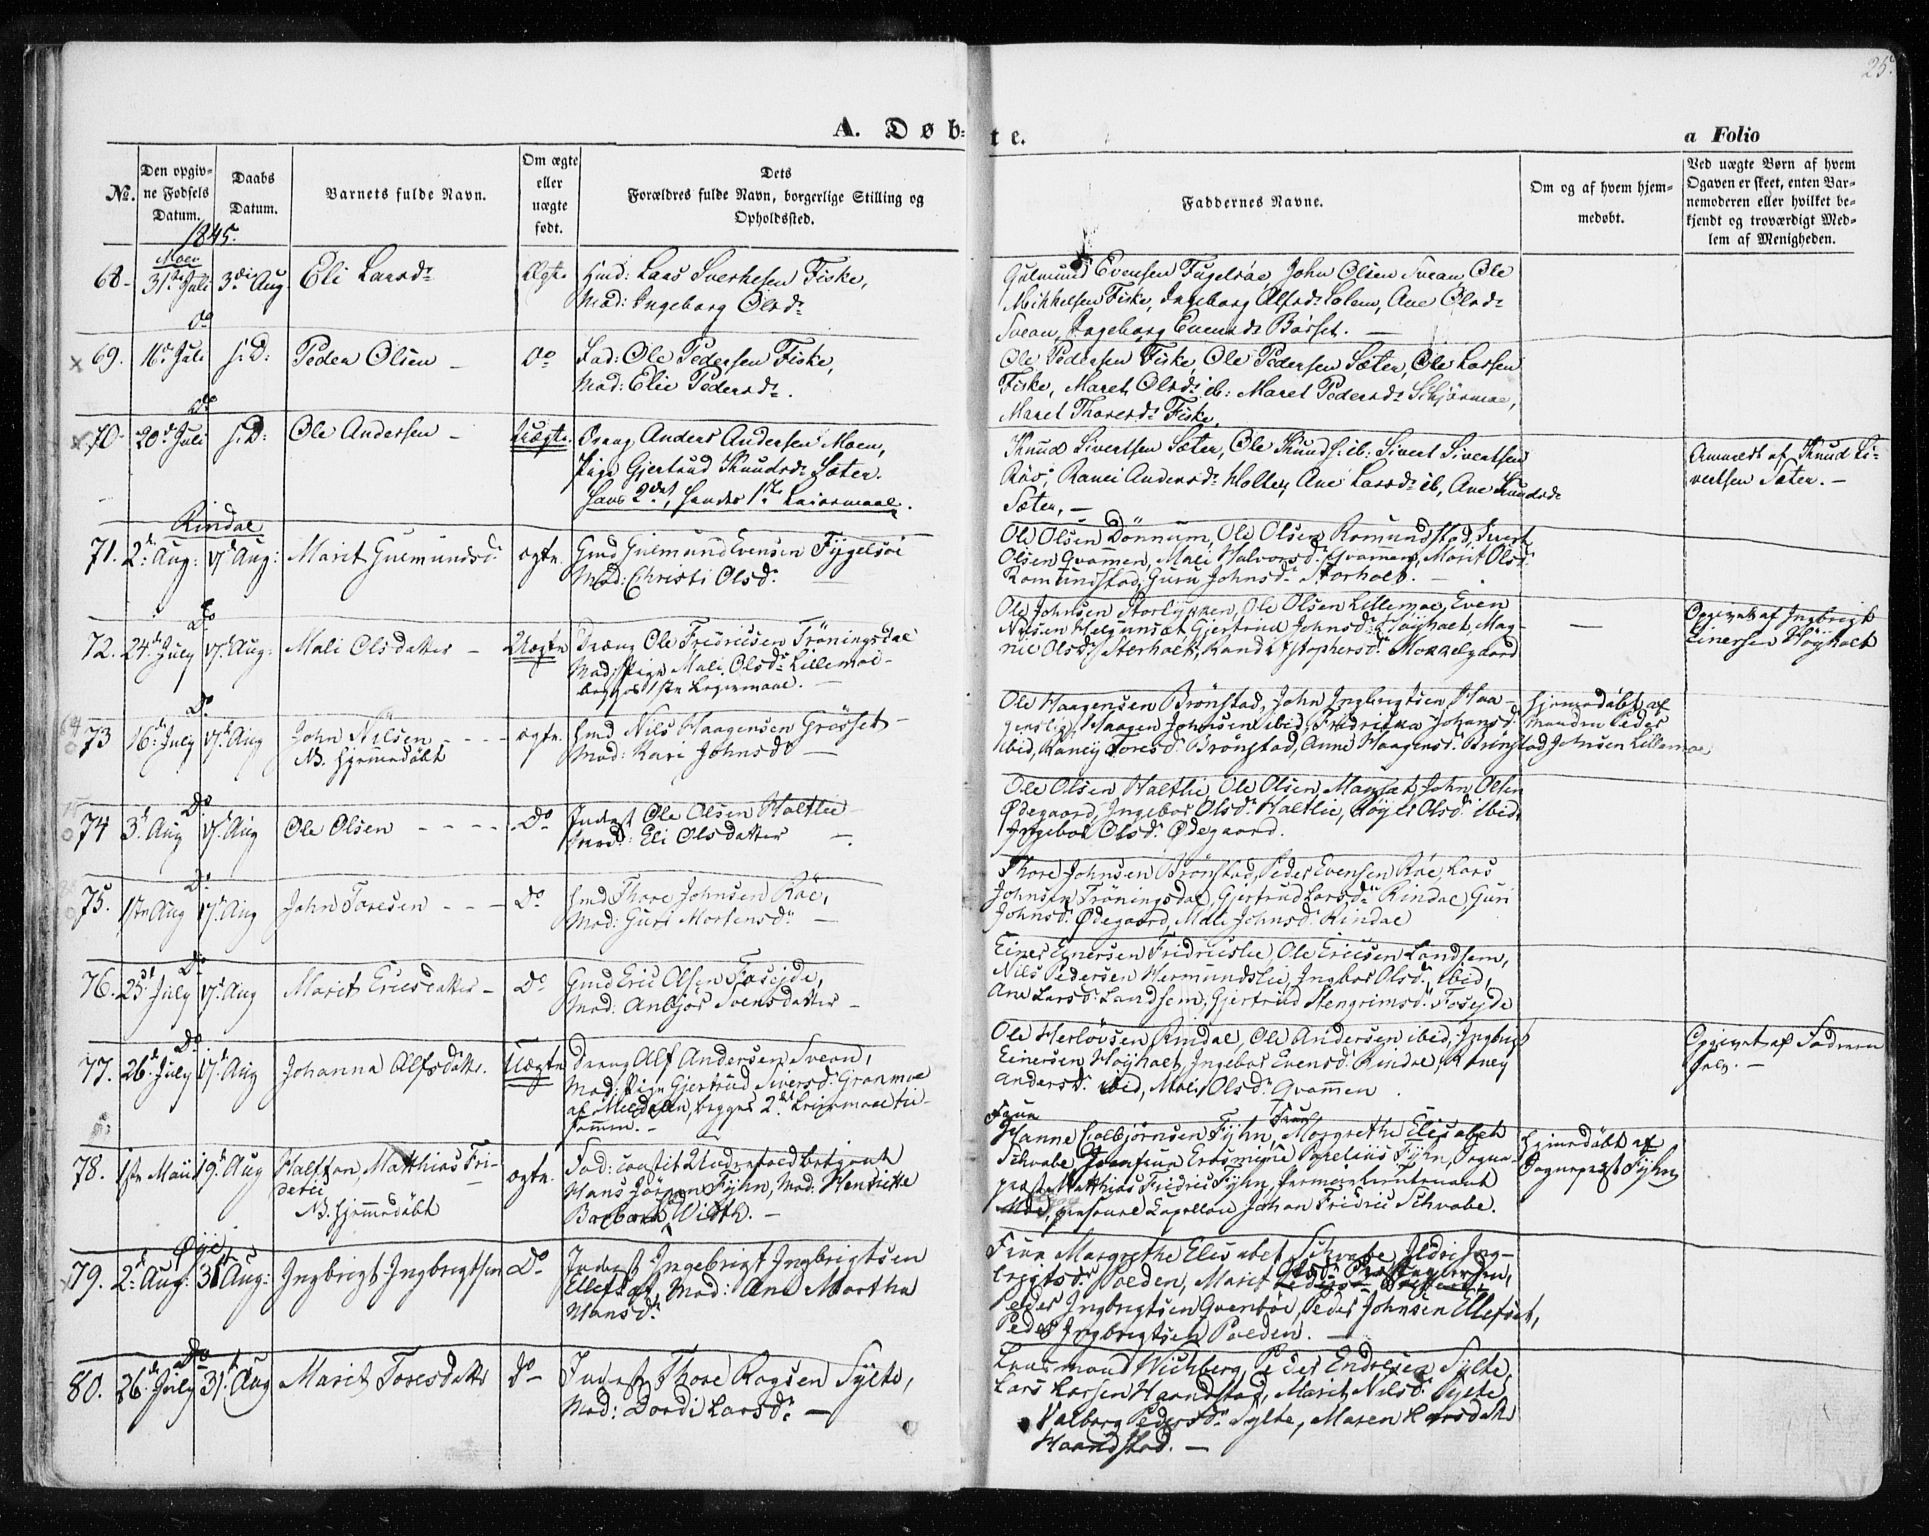 25.
A. Døb-
te.
a Folio
No.
Den opgiv-
ne Fødsels
Datum.
Daabs
Datum.
Barnets fulde Navn.
Om ægte
eller
uægte
født.
Dets
Forældres fulde Navn, borgerlige Stilling og
Opholdssted.
Faddernes Navne.
Om og af hvem hjem-
medøbt.
Ved uægte Børn af hvem
Opgaven er skeet, enten Bar-
nemoderen eller hvilket be-
kjendt og troværdigt Med-
lem af Menigheden.
1845.
Moen
68. 31te Juli 3die Aug Eli Larsd: Ægte Gmd: Lars Fiske,
Mod: Ingeborg Olsd:
Evensen John Olsen Svean, Ole
Mikkelsen Fiske, Ingeborg Olsd:
Svean, Ingeborg Evensd: Børset. —
Do
69. 16de Juli s: D: Peder Olsen Do Fad: Ole Pedersen Fiske,
Mod: Elie Pedersd:
Ole Pedersen Fiske, Ole Pedersen Sæter, Ole Larsen
Fiske, Maret Olsd: ib: Maret Pedersd:
Maret Thoresd: Fiske.
Do
70. 20de Juli s: D: Ole Andersen Uægte Dreng Anders Andersen Moen,
Pige Gjertrud Knudsd: Sæter.
hans 2det, hendes 1ste Leiermaal.
Knud Sivertsen Sæter, Ole Knuds: ib: Sivert Sivertsen
Andersd: Ane Larsd: ib, Ane Knudsd:
Sæter, —
af Knud Si-
vertsen Sæter. —
Rindal
71. 2de Aug: 17de Aug: Marit Gulmundsd: ægte. Gmd Gulmund Evensen Fygelsøe
Mod: Christi Olsd:
Ole Olsen Dønnum, Ole Olsen Romundstad, Sivert
Olsen Qvamen, Mali Halvorsd: Qvammen, Marit Olsd:
Romundstad, Guru Johnsd: Storholt. —
Do
72. 24de July 17de Aug: Mali Olsdatter — Uægte Dreng Ole Fredricsen Trøningsdal
Mod: Pige Mali Olsd: Lillemoe
begges 1ste Leiermaal. —
Ole Johnsen Ole Olsen Lillemoe, Even
Nilsen Helgumsæt, Gjertrud Johnsd: Høyholt, Mag-
nil Olsd:
—
Opgivet af Ingbrigt
Einersen Høyholt
Do
73 16de July 17de Aug John Nilsen ægte. Gmd Nils Haagensen Grøsset
NB. hjemmedøbt
Mod: Kari Johnsd:
Ole Haagensen Brønstad, John Ingbrigtsen Haa-
genslie, Haagen Johnsen ibid, Fredrikka Johansd:
ibid, Raney Toresd: Brønstad, Anne Haagensd: Brønstad
hjemmedøbt af
Manden Peder
Johnsen Lillemoe
Do
74 3de Aug 17de Aug Ole Olsen Do Inderst Ole Olsen Haltlie
Mod: Eli Olsdatter
Ole Olsen Haltlie, Ole Olsen John Olsen
Ødegaard, Ingebor Olsd: Haltlie, Olsd: ibid,
Ingebor Olsd: Ødegaard.
Do
75. 1ste Aug 17de Aug John Toresen Do Gmd Thore Johnsen Røe,
Mod: Guri Mortensd:
Thore Johnsen Brønstad, Peder Evensen Røe, Lars
Johnsen Trøningsdal, Gjertrud Larsd: Rindal, Guri
Johnsd: Ødegaard, Mali Johnsd: Rindal
Do
76. 25de July 17de Aug Marit Ericsdatter Do Gmd Eric Olsen Foseyde,
Mod: Anbjør Svensdatter
Einer Einersen Fridricslie, Ole Ericsen Landsem,
Nils Pedersen Hermundslie, Ingbor Olsd: ibid,
Ane Larsd: Landsem, Gjertrud Stengrimsd: Foseyde
Do
77. 26de July 17de Aug Johanna Alfsdatter. Uægte Dreng Alf Andersen Svean,
Mod: Pige Gjertrud Siversd: Granmoe
af Meldalen, begges 2det Leiermaal til-
sammen. —
Ole Herløvsen Rindal, Ole Andersen ibid, Ingbrigt
Einersen Høyholt, Ingebor Evensd: Rindal, Raney
Andersd: ibid, Mali Olsd: Qvammen
Opgivet af Faderen
selv. —
78. 1ste Maii 19de Aug Halftan, Matthias Fri-
deric
NB. hjemmedøbt
ægte. Fad:
Hans Jørgen Fyhn, Mod: Henrikke
Barbara Wilth.
Fruer
Hanne Colbjørnsen Fyhn, Margrethe Elisabeth
Schwabe, Erasmine Fyhn, Sogne-
præst Matthias Fridric Fyhn, Premierlieutenant
personel Capellan Johan Fridric Schwabe.
hjemmedøbt af
Sognepræst Fyhn
Øye
79. 2de Aug: 31te Aug: Ingbrigt Ingbrigtsen Do Inderst Ingebrigt Ingbrigtsen
Ellefsæt, Mod: Ane Martha
Hansd:
Frue Margrethe Elisabet Schwabe, Ildri Ing-
brigtsd: Polden, Marit
Peder Ingbrigtsen Peder Johnsen Ellefsæt,
Peder Ingbrigtsen Polden. —
Do
80. 26de July 31te Aug Marit Toresdatter Do Inderst Thore Sylte,
Mod: Dordi Larsd: —
Wichberg, Peder Endresen Sylte,
Lars Larsen Haandstad, Marit Nilsd: Sylte
Valborg Pedersd: Sylte, Maren Larsdatter
Haandstad. —